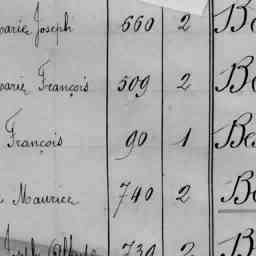 Marie Joseph 660 2 Be
Marie François 509 2 Be
François 90 1 Be
Maurice 740 2 Be
Joseph 730 2 B